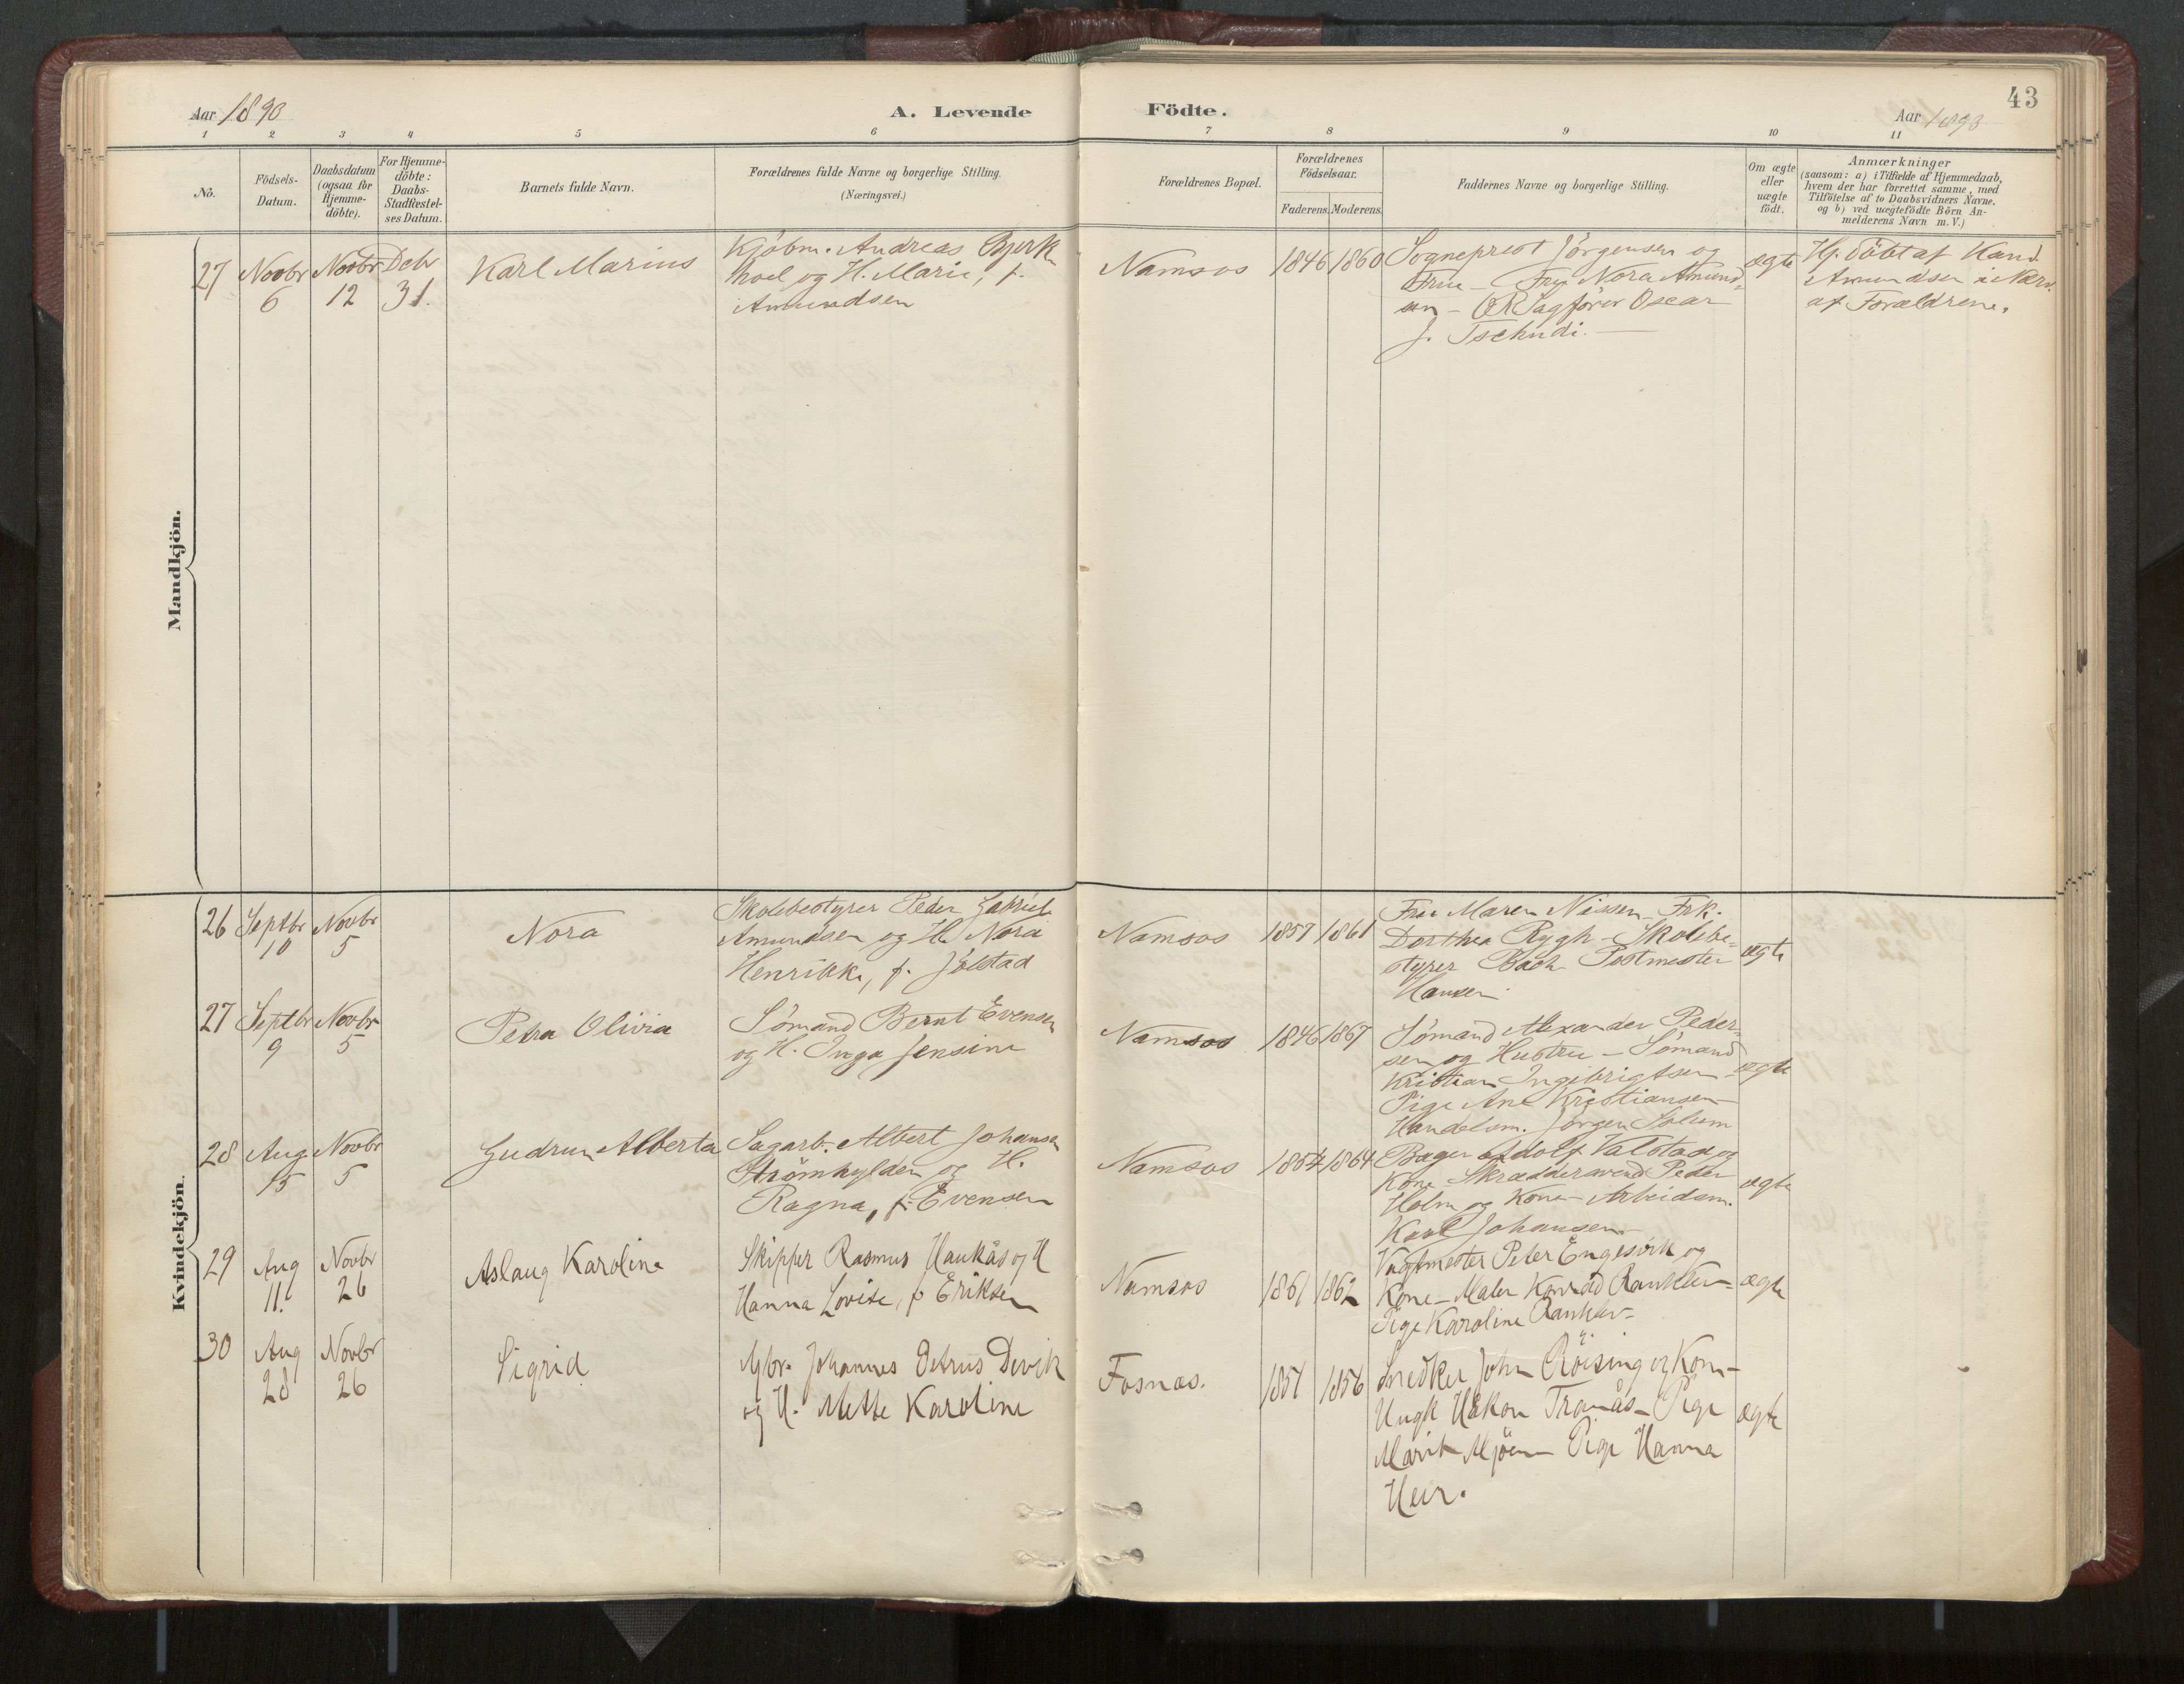 43
Aar 1893
A. Levende Födte.
Aar 1893
1 2 3 4 5 6 7 8 9 10 11
No.
Födsels-
Datum.
Daabsdatum
(ogsaa for
Hjemme-
döbte).
For Hjemme-
döbte:
Daabs-
Stadfæstel-
ses Datum.
Barnets fulde Navn.
Forældrenes fulde Navne og borgerlige Stilling.
(Næringsvei.)
Forældrenes Bopæl.
Forældrenes
Födselsaar.
Faderens. Moderens.
Faddernes Navne og borgerlige Stilling.
Om ægte
eller
uægte
födt.
Anmærkninger
(saasom: a) i Tilfælde af Hjemmedaab,
hvem der har forrettet samme, med
Tilföielse af to Daabsvidners Navne.
og b) ved uægtefödte Börn An-
melderens Navn m. V.)
Mandkjön.
27
Novbr
6
Novbr
12
Debr
31.
Karl Marius
Kjöbm. Andreas Bjerk
hoel og H. Marie, f.
Amundsen
Namsos
1846 1860
Sogneprest Jörgensen og
Frue - Frøk Nora Amund-
sen - ORSagförer Oscar
J. Tschudi.
ægte
Hj. döbt af Kand.
Amundsen i Nærv.
af Forældrene.
Kvindekjön.
26
Septbr
10
Novbr
5
Nora
Skolebestyrer Peder Gabriel
Amundsen og H. Nora
Henrikke, f. Jölstad
Namsos
1857 1861
Frue Maren Nissen - Frk.
Dorthea Rygh - Skolebe-
styrer Bach Postmester
Hansen
ægte
27
Septbr
9
Novbr
5
Petra Olivia
Sömand Bernt Evensen
og H. Inga Jensine
Namsos
1846 1867
Sömand Alexander Peder-
sen og Hustru - Sömand
Kristian Ingebrigtsen -
Pige Ane Kristiansen -
Handelsm. Jörgen Solum
ægte
28
Aug
15
Novbr
5
Gudrun Alberta
Sagarb. Albert Johansen
Strömhylden og H.
Ragna, f. Evensen
Namsos
1854 1864
Bager Adolf Valstad og
Kone - Skræddersvend Peder
Holm og Kone - Arbeidsm.
Karl Johansen
ægte
29
Aug
11.
Novbr
26
Aslaug Karoline
Skipper Rasmus Haukås og H
Hanna Lovise, f Eriksen
Namsos
1861 1862
Vagtmester Peter Engesvik og
Kone - Maler Konrad
Pige Karoline
ægte
30
Aug
28
Novbr
26
Sigrid
Gbr. Johannes Petrus Devik
og H. Mette Karoline
Fosnæs.
1857 1856
Snedker John Röising og Kone -
Ungk Håkon Tranås - Pige
Marit Mjöen Pige Hanna
ægte